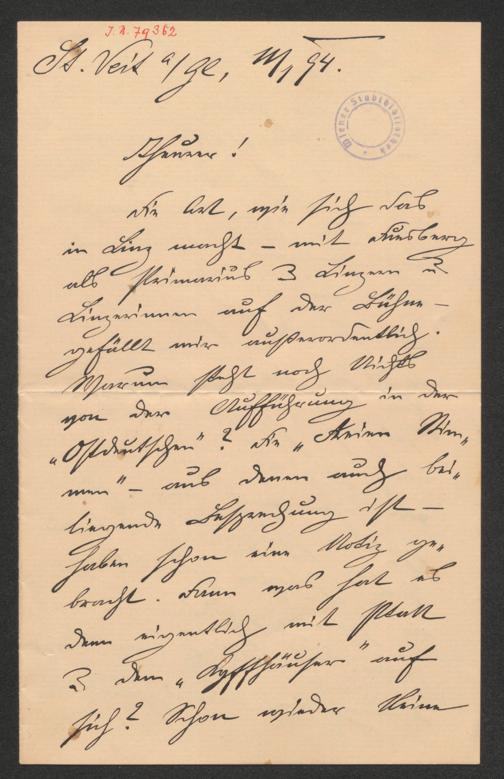 J.N. 79362
St. Veit a/Gl, 11/1 94.
Wiener Stadtbibliothek
Theurer!
Die Art, wie sich das
in Linz macht – mit Duesberg
als Primarius 3 Linzern u
Linzerinnen auf der Bühne –
gefällt mir außerordentlich.
Warum steht noch Nichts
von der Aufführung in der
„Ostdeutschen“? Die „Freien Stim„
men“ – aus denen auch bei„
liegende Besprechung ist –
haben schon eine Notiz ge„
bracht. Dann was hat es
denn eigentlich mit Platt
3 dem „Kyffhäuser“ auf
sich? Schon wieder keine